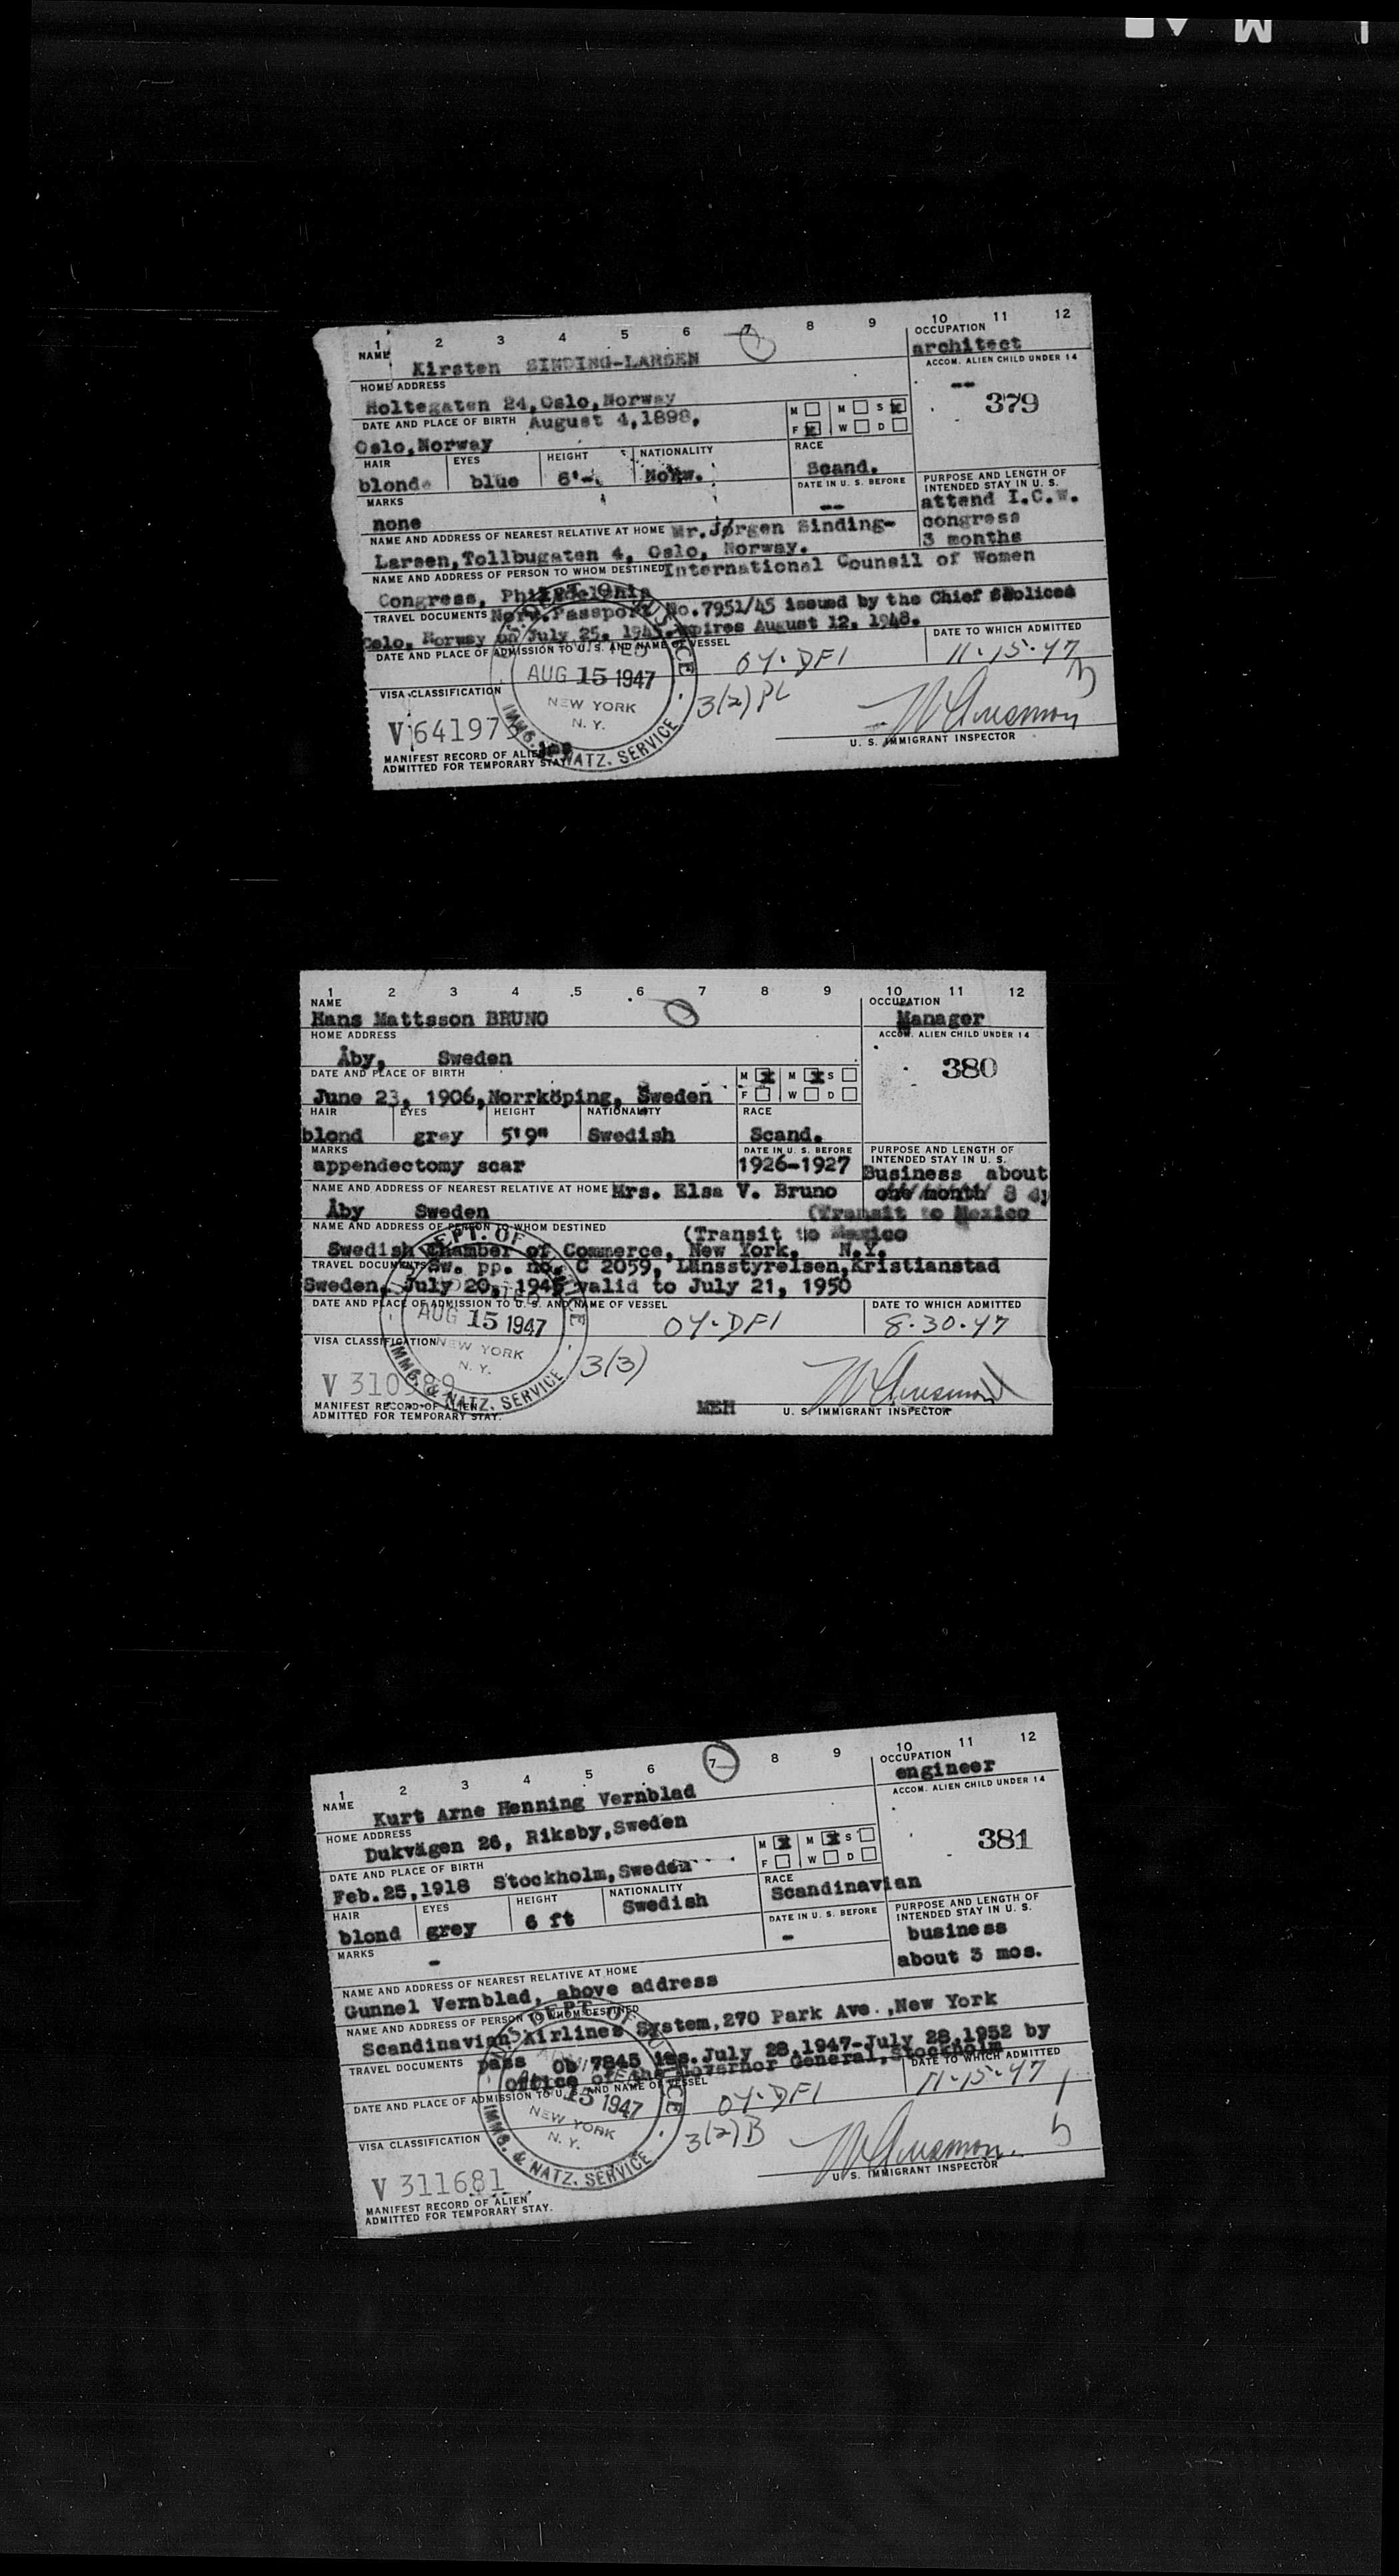 1 2 3 4 5 6 7 8 9 10 11 12
NAME Kirsten SINDING-LARSEN
OCCUPATION
architect
HOME ADDRESS
ACCOM. ALIEN CHILD UNDER 14
--
Holtegaten 24, Oslo, Norway
379
DATE AND PLACE OF BIRTH August 4, 1898,
M M S x
F x W D
Oslo, Norway
HAIR EYES HEIGHT NATIONALITY RACE
blonde blue 6'-. Norw. Scand.
MARKS DATE IN U. S. BEFORE
none --
PURPOSE AND LENGTH OF
INTENDED STAY IN U. S.
attend I.C.W.
congress
3 months
NAME AND ADDRESS OF NEAREST RELATIVE AT HOME Mr. Jørgen Sinding-
Larsen, Tollbugaten 4, Oslo, Norway.
NAME AND ADDRESS OF PERSON TO WHOM DESTINED International Council of Women
Congress, Philadelphia
TRAVEL DOCUMENTS Norw. Passport No. 7951/45 issued by the Chief
Oslo, Norway on July 25, expires August 12, 1948.
DATE AND PLACE OF ADMISSION TO U. S. AND NAME OF VESSEL
DATE TO WHICH ADMITTED
OY-DFI 11-15-47
AUG 15 1947
NEW YORK
N. Y.
IMMG. & NATZ. SERVICE
3(2) PL
VISA CLASSIFICATION
V 641973
U. S. IMMIGRANT INSPECTOR
MANIFEST RECORD OF ALIEN
ADMITTED FOR TEMPORARY STAY.
1 2 3 4 5 6 7 8 9 10 11 12
NAME
Hans Mattsson BRUNO
OCCUPATION
Manager
HOME ADDRESS
ACCOM. ALIEN CHILD UNDER 14
Åby, Sweden
380
DATE AND PLACE OF BIRTH
M x M x S
F W D
June 23, 1906, Norrköping, Sweden
HAIR EYES HEIGHT NATIONALITY RACE
blond grey 5'9" Swedish Scand.
MARKS DATE IN U. S. BEFORE
appendectomy scar 1926-1927
PURPOSE AND LENGTH OF
INTENDED STAY IN U. S.
Business about
one month 8 dy
(Transit to Mexico
NAME AND ADDRESS OF NEAREST RELATIVE AT HOME Mrs. Elsa V. Bruno
Åby Sweden
NAME AND ADDRESS OF PERSON TO WHOM DESTINED (Transit to Mexico
Swedish Chamber of Commerce, New York, N.Y.
TRAVEL DOCUMENTS Sw. pp. no. C 2059, Länsstyrelsen, Kristianstad
Sweden, July 20, 1945 valid to July 21, 1950
DATE AND PLACE OF ADMISSION TO U. S. AND NAME OF VESSEL
DATE TO WHICH ADMITTED
OY-DFI 8-30-47
AUG 15 1947
NEW YORK
N. Y.
IMMG. & NATZ. SERVICE
3(3)
VISA CLASSIFICATION
V 310989
MEM
U. S. IMMIGRANT INSPECTOR
MANIFEST RECORD OF ALIEN
ADMITTED FOR TEMPORARY STAY.
1 2 3 4 5 6 7 8 9 10 11 12
NAME Kurt Arne Henning Vernblad
OCCUPATION
engineer
HOME ADDRESS
ACCOM. ALIEN CHILD UNDER 14
Dukvägen 26, Riksby, Sweden
381
DATE AND PLACE OF BIRTH
M x M x S
F W D
Feb. 25, 1918 Stockholm, Sweden
HAIR EYES HEIGHT NATIONALITY RACE
blond grey 6 ft Swedish Scandinavian
MARKS DATE IN U. S. BEFORE
- -
PURPOSE AND LENGTH OF
INTENDED STAY IN U. S.
business
about 3 mos.
NAME AND ADDRESS OF NEAREST RELATIVE AT HOME
Gunnel Vernblad, above address
NAME AND ADDRESS OF PERSON TO WHOM DESTINED
Scandinavian Airlines System, 270 Park Ave., New York
TRAVEL DOCUMENTS pass Ob 7845 iss. July 28, 1947-July 28, 1952 by
Office of the Governor General, Stockholm
DATE AND PLACE OF ADMISSION TO U. S. AND NAME OF VESSEL
DATE TO WHICH ADMITTED
OY-DFI 11-15-47
15 1947
NEW YORK
N. Y.
IMMG. & NATZ. SERVICE
3(2)B
VISA CLASSIFICATION
V 311681
U. S. IMMIGRANT INSPECTOR
MANIFEST RECORD OF ALIEN
ADMITTED FOR TEMPORARY STAY.